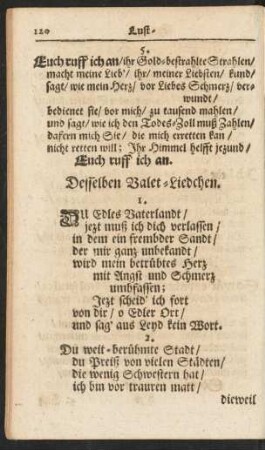 120 Lust-
5.
Euch ruff ich an/ ihr Gold-bestrahlte Strahlen/
macht meine Lieb'/ ihr/ meiner Liebsten/ kund/
sagt/ wie mein Herz/ vor Liebes Schmerz/ ver-
wundt/
bedienet sie/ vor mich/ zu tausend mahlen/
und sagt/ wie ich den Todes-Zoll muß Zahlen/
dafern mich Sie/ die mich erretten kan/
nicht retten will; Ihr Himmel helfft jezund/
Euch ruff ich an.
Desselben Valet-Liedchen.
1.
DU Edles Vaterlandt/
jezt muß ich dich verlassen/
in dem ein frembder Sandt/
der mir ganz unbekandt/
wird mein betrübtes Herz
mit Angst und Schmerz
umbfassen;
Jezt scheid' ich fort
von dir/ o Edler Ort/
und sag' aus Leyd kein Wort.
2.
Du weit-berühmte Stadt/
du Preiß von vielen Städten/
die wenig Schwestern hat/
ich bin vor trauren matt/
dieweil